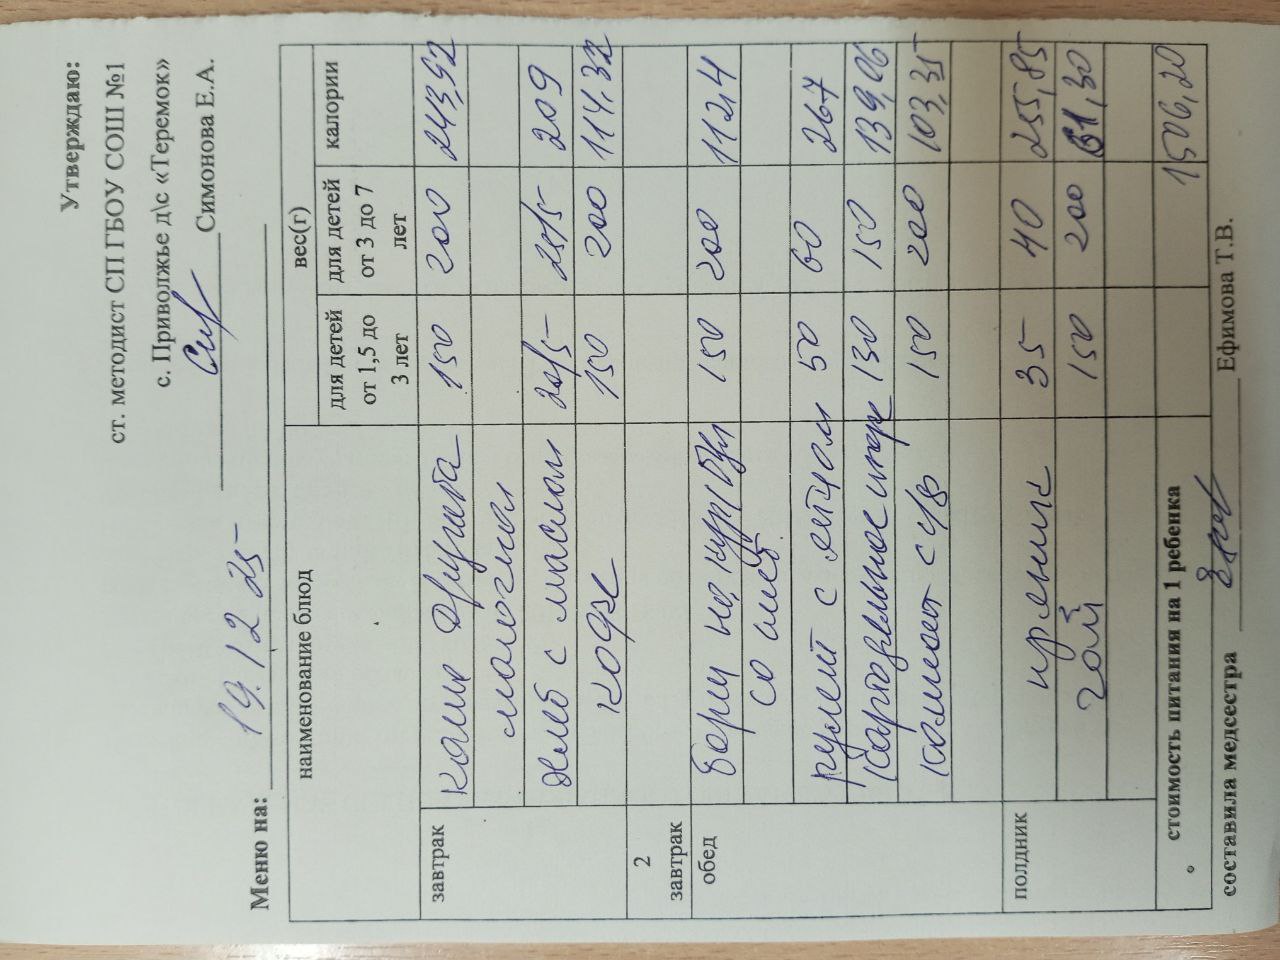 Утверждаю:
ст. методист СП ГБОУ СОШ №1
с. Приволжье д\с «Теремок»
Симонова Е.А.
Меню на: 19.12.25
наименование блюд вес(г)
для детей от 1,5 до 3 лет для детей от 3 до 7 лет калории
завтрак каша Дружба 150 200 243,92
молочная
хлеб с маслом 20/5 25/5 209
кофе 150 200 114,32
2 завтрак
обед борщ на кур/бул 150 200 112,4
со смет.
рулет с яйцом 50 60 267
картофельное пюре 130 150 139,06
компот с с/ф 150 200 103,35
полдник пряник 35 40 255,85
чай 150 200 61,30
стоимость питания на 1 ребенка 1506,20
составила медсестра Ефимова Т.В.